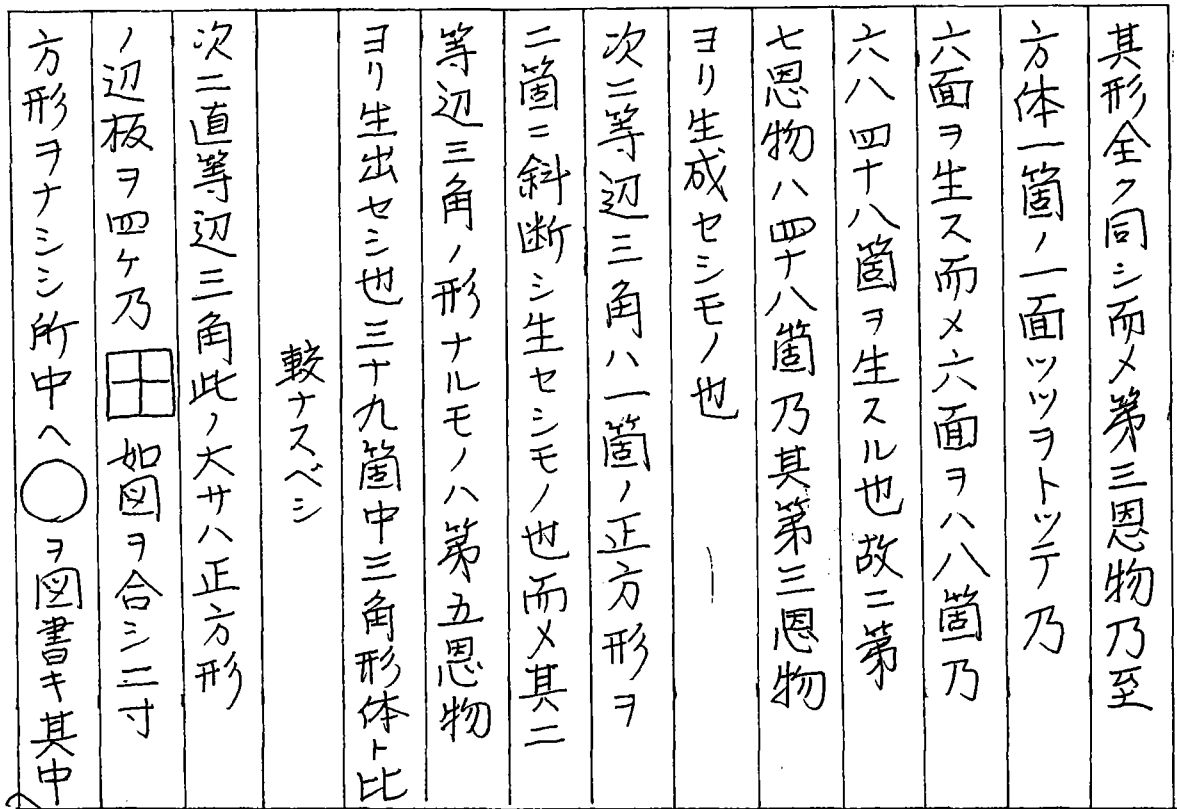 其形全ク同シ而メ第三恩物乃至
方体一箇ノ一面ツツヲトツテ乃
六面ヲ生ス而メ六面ヲハ八箇乃
六八四十八箇ヲ生スル也故ニ第
七恩物ハ四十八箇乃其第三恩物
ヨリ生成セシモノ也
次ニ等辺三角ハ一箇ノ正方形ヲ
二箇ニ斜断シ生セシモノ也而メ其二
等辺三角ノ形ナルモノハ第五恩物
ヨリ生出セシ也三十九箇中三角形体ト比
較ナスベシ
次ニ直等辺三角此ノ大サハ正方形
ノ辺板ヲ四ケ乃田如図ヲ合シ二寸
方形ヲナシシ所中ヘ◯ヲ図書キ其中